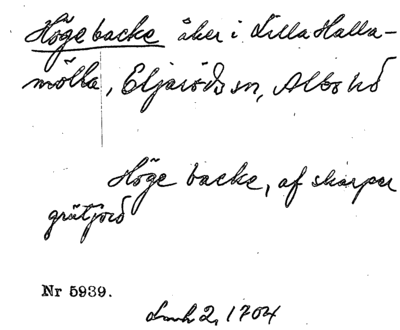 Högebacke åker i Lilla Halla-
mölla, Eljaröds sn, Albo hd
Höge backe, af skarper
gråtjord
Nr 5939.
Lmh 2, 1704